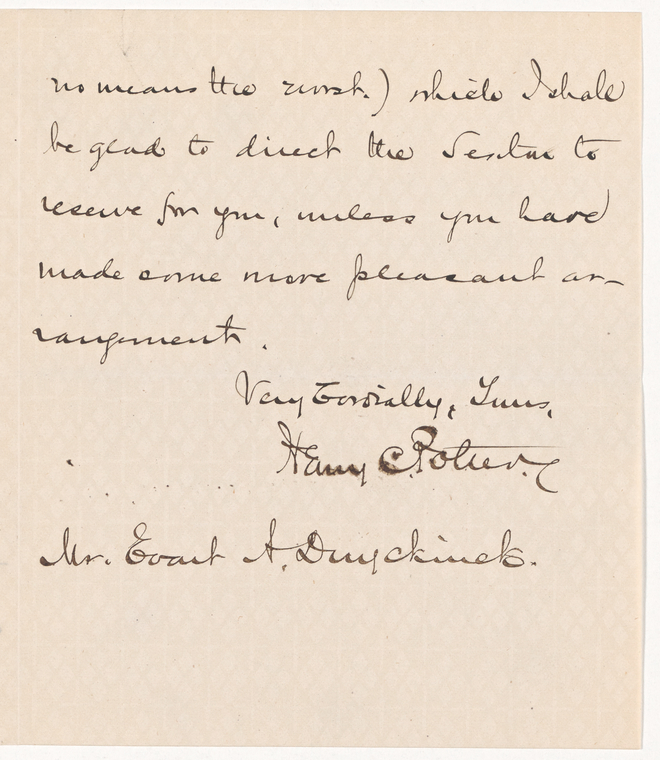 no means the worst.) which I shall
be glad to direct the Sexton to
reserve for you, unless you have
made some more pleasant ar-
rangement.
Very Cordially, Yours,
Henry C. Potter.
Mr. Evart A. Duyckinck.